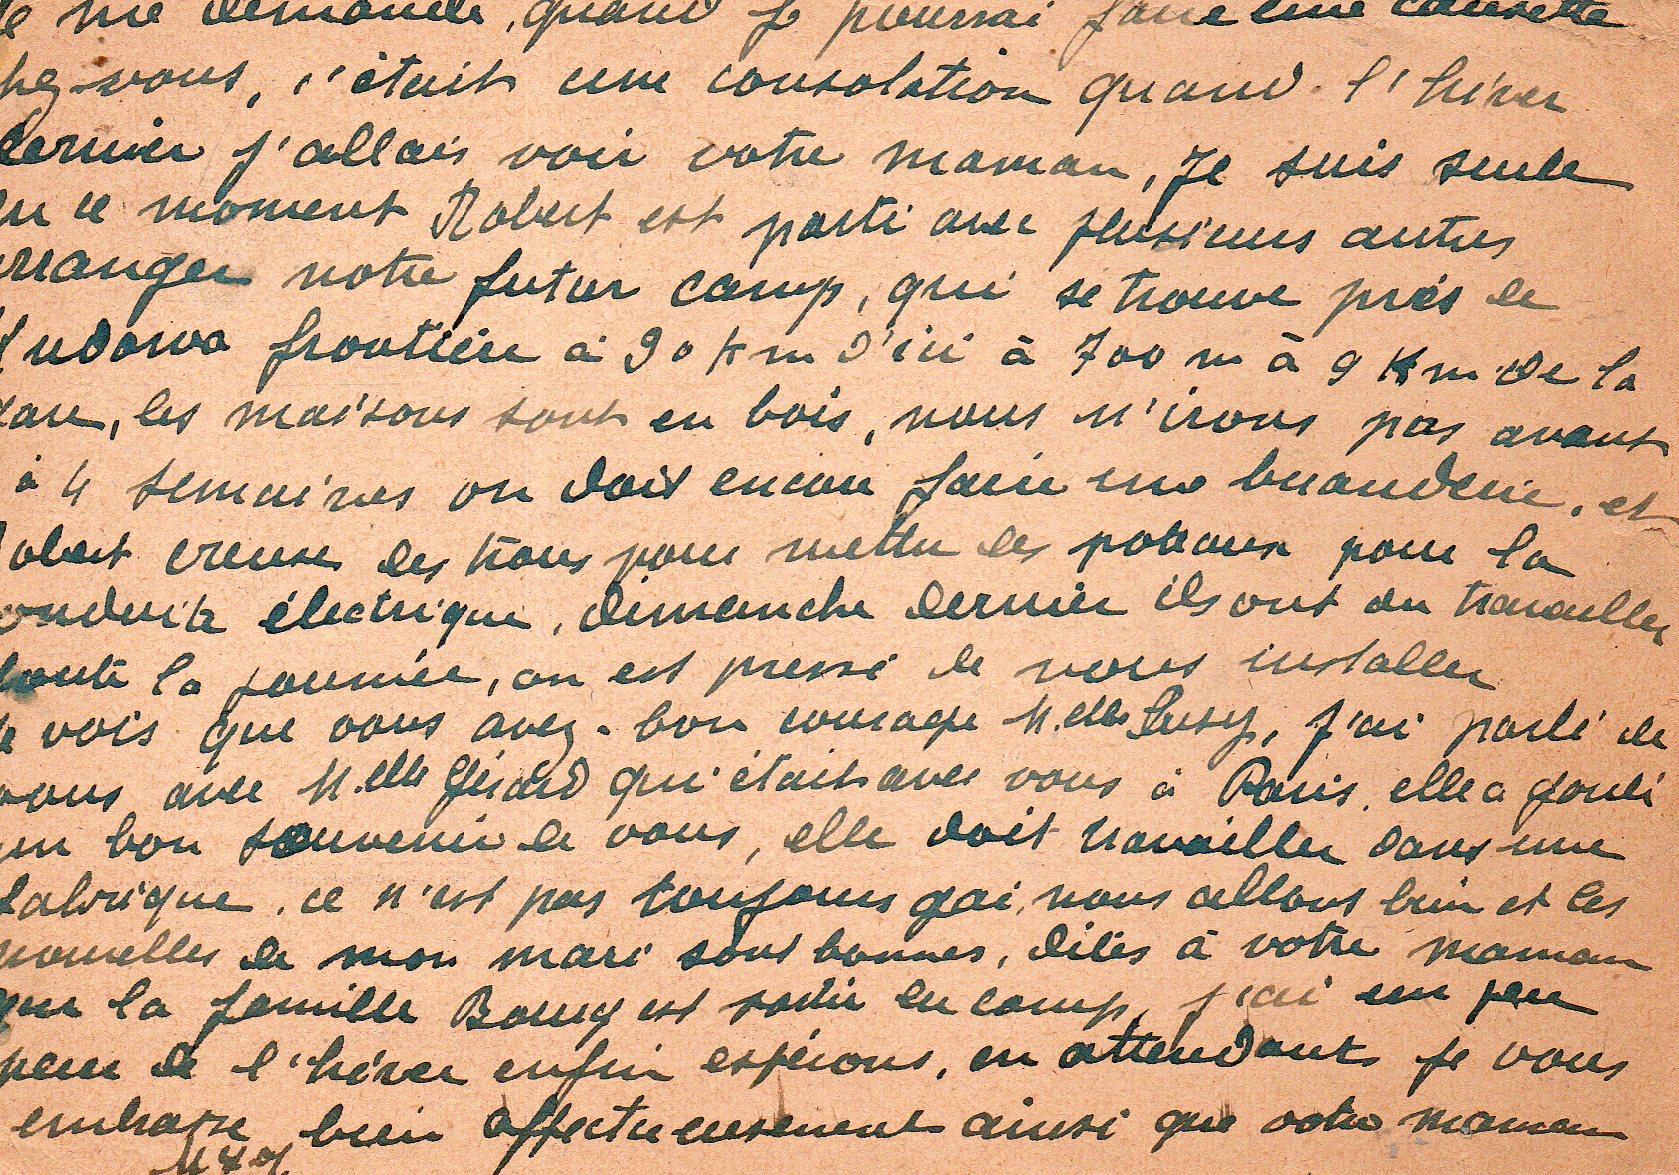 me demande, quand je pourrai faire une causette
chez-vous, c'était une consolation quand l'hiver
dernier j'allais voir votre maman, Je suis seule
en ce moment Robert est parti avec plusieurs autres
arranger notre futur camp, qui se trouve près de
Kudowa frontière à 90 Km d'ici à 700 m à 9 Km de la
gare, les maisons sont en bois, nous n'irons pas avant
à 4 semaines on doit encore faire une buanderie, et
Robert creuse des trous pour mettre des poteaux pour la
conduite électrique, dimanche dernier ils ont du travailler
toute la journée, on est pressé de nous installer
Je vois que vous avez bon courage M.elle Susy, j'ai parlé de
vous avec M.elle Gérard qui était avec vous à Paris, elle a gardé
un bon souvenir de vous, elle doit travailler dans une
fabrique, ce n'est pas toujours gai, nous allons bien et les
nouvelles de mon mari sont bonnes, dites à votre maman
que la famille est sortie du camp, j'ai un peu
peur de l'hiver enfin espérons, en attendant je vous
embrasse bien affectueusement ainsi que votre maman